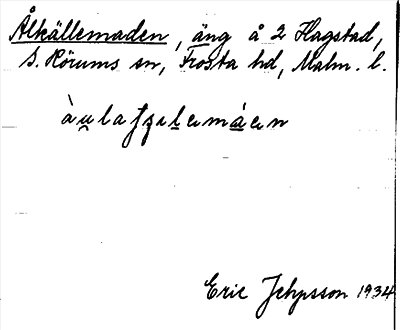 Ålkällemaden, äng å 2 Hagstad,
S. Rörums sn, Frosta hd, Malm. l.
Eric Jepsson 1934